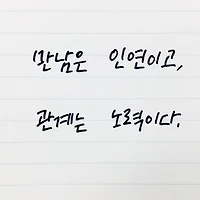 만남은 인연이고,
관계는 노력이다.